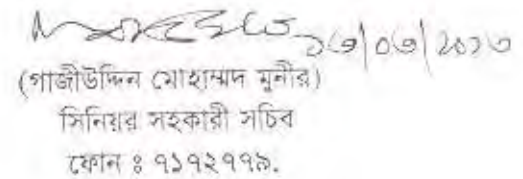 ১৩/০৩/২০১৩
(গাজীউদ্দিন মোহাম্মদ মুনীর)
সিনিয়র সহকারী সচিব
ফোন ঃ ৭১৭২৭৭৯.